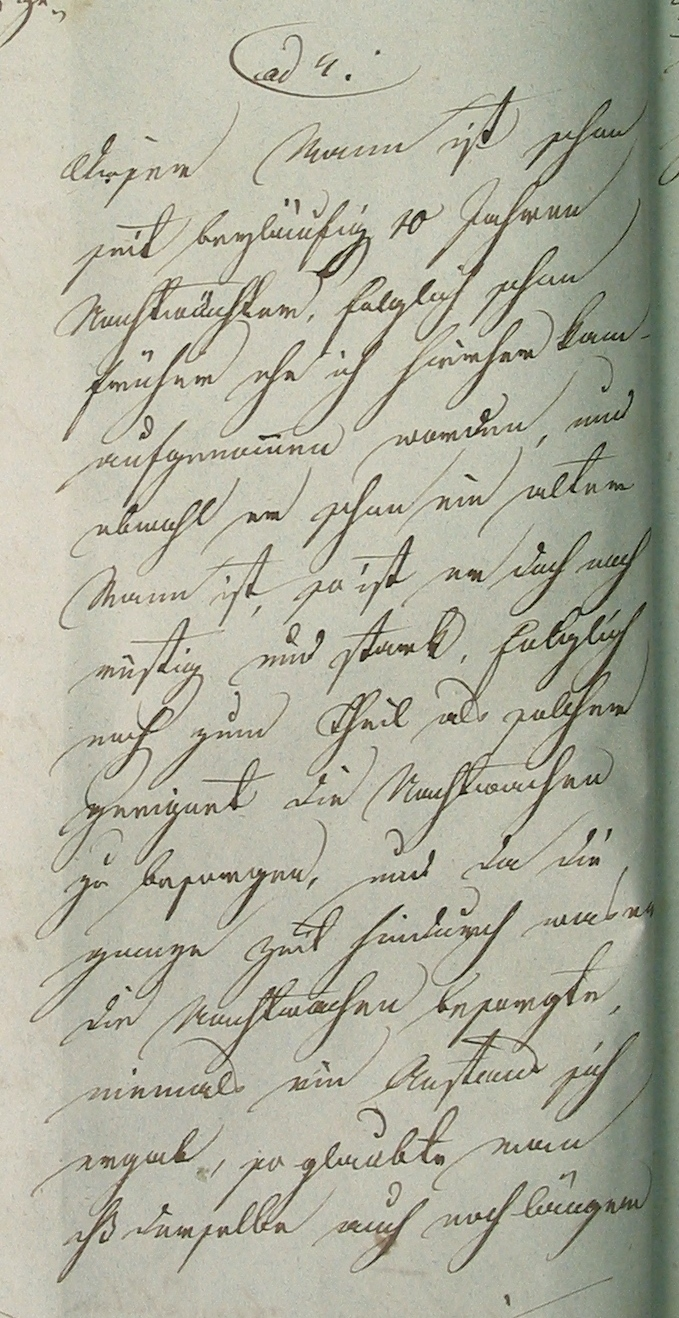 ad 4.
Dieser Mann ist schon
seit beyläufig 10 Jahren
Nachtwächter, folglich schon
früher ehe ich hierher kam
aufgenommen worden, und
obwohl er schon ein alter
Mann ist, so ist er doch noch
rüstig und stark, folglich
noch zum Theil als solcher
geeignet die Nachtwachen
zu besorgen, und da die
ganze Zeit hindurch als er
die Nachtwachen besorgte,
niemals ein Anstand sich
ergab, so glaubte man
daß derselbe auch noch länger